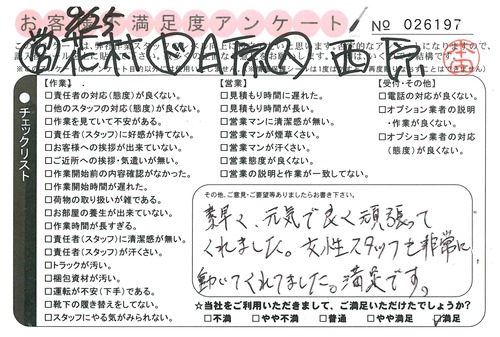 お客様不満足度アンケート
No 026197
【作業】
□責任者の対応(態度)が良くない。
□他のスタッフの対応(態度)が良くない。
□作業を見ていて不安がある。
□責任者(スタッフ)に好感が持てない。
□お客様への挨拶が出来ていない。
□ご近所への挨拶・気遣いが無い。
□作業開始前の内容確認がなかった。
□作業開始時間が遅れた。
□荷物の取り扱いが雑である。
□お部屋の養生が出来ていない。
□作業時間が長すぎる。
□責任者(スタッフ)に清潔感が無い。
□責任者(スタッフ)が汗くさい。
□トラックが汚い。
□梱包資材が汚い。
□運転が不安(下手)である。
□靴下の履き替えをしてない。
□スタッフにやる気がみられない。
【営業】
□見積もりに遅れた。
□見積もり時間が長い。
□営業マンに清潔感が無い。
□営業マンが煙草くさい。
□営業マンが汗くさい。
□営業態度が良くない。
□営業の説明と作業が一致してない。
【受付・その他】
□電話の対応が良くない。
□オプション業者の説明
・作業が良くない。
□オプション業者の対応
(態度)が良くない。
●チェックリスト
その他、ご意見・ご要望等ありましたらお書き下さい。
素早く、元気で良く頑張って
くれました。女性スタッフも非常に
動いてくれてました。満足です。
☆当社をご利用いただきまして、ご満足いただけたでしょうか?
□不満 □やや不満 □普通 □やや満足 □満足